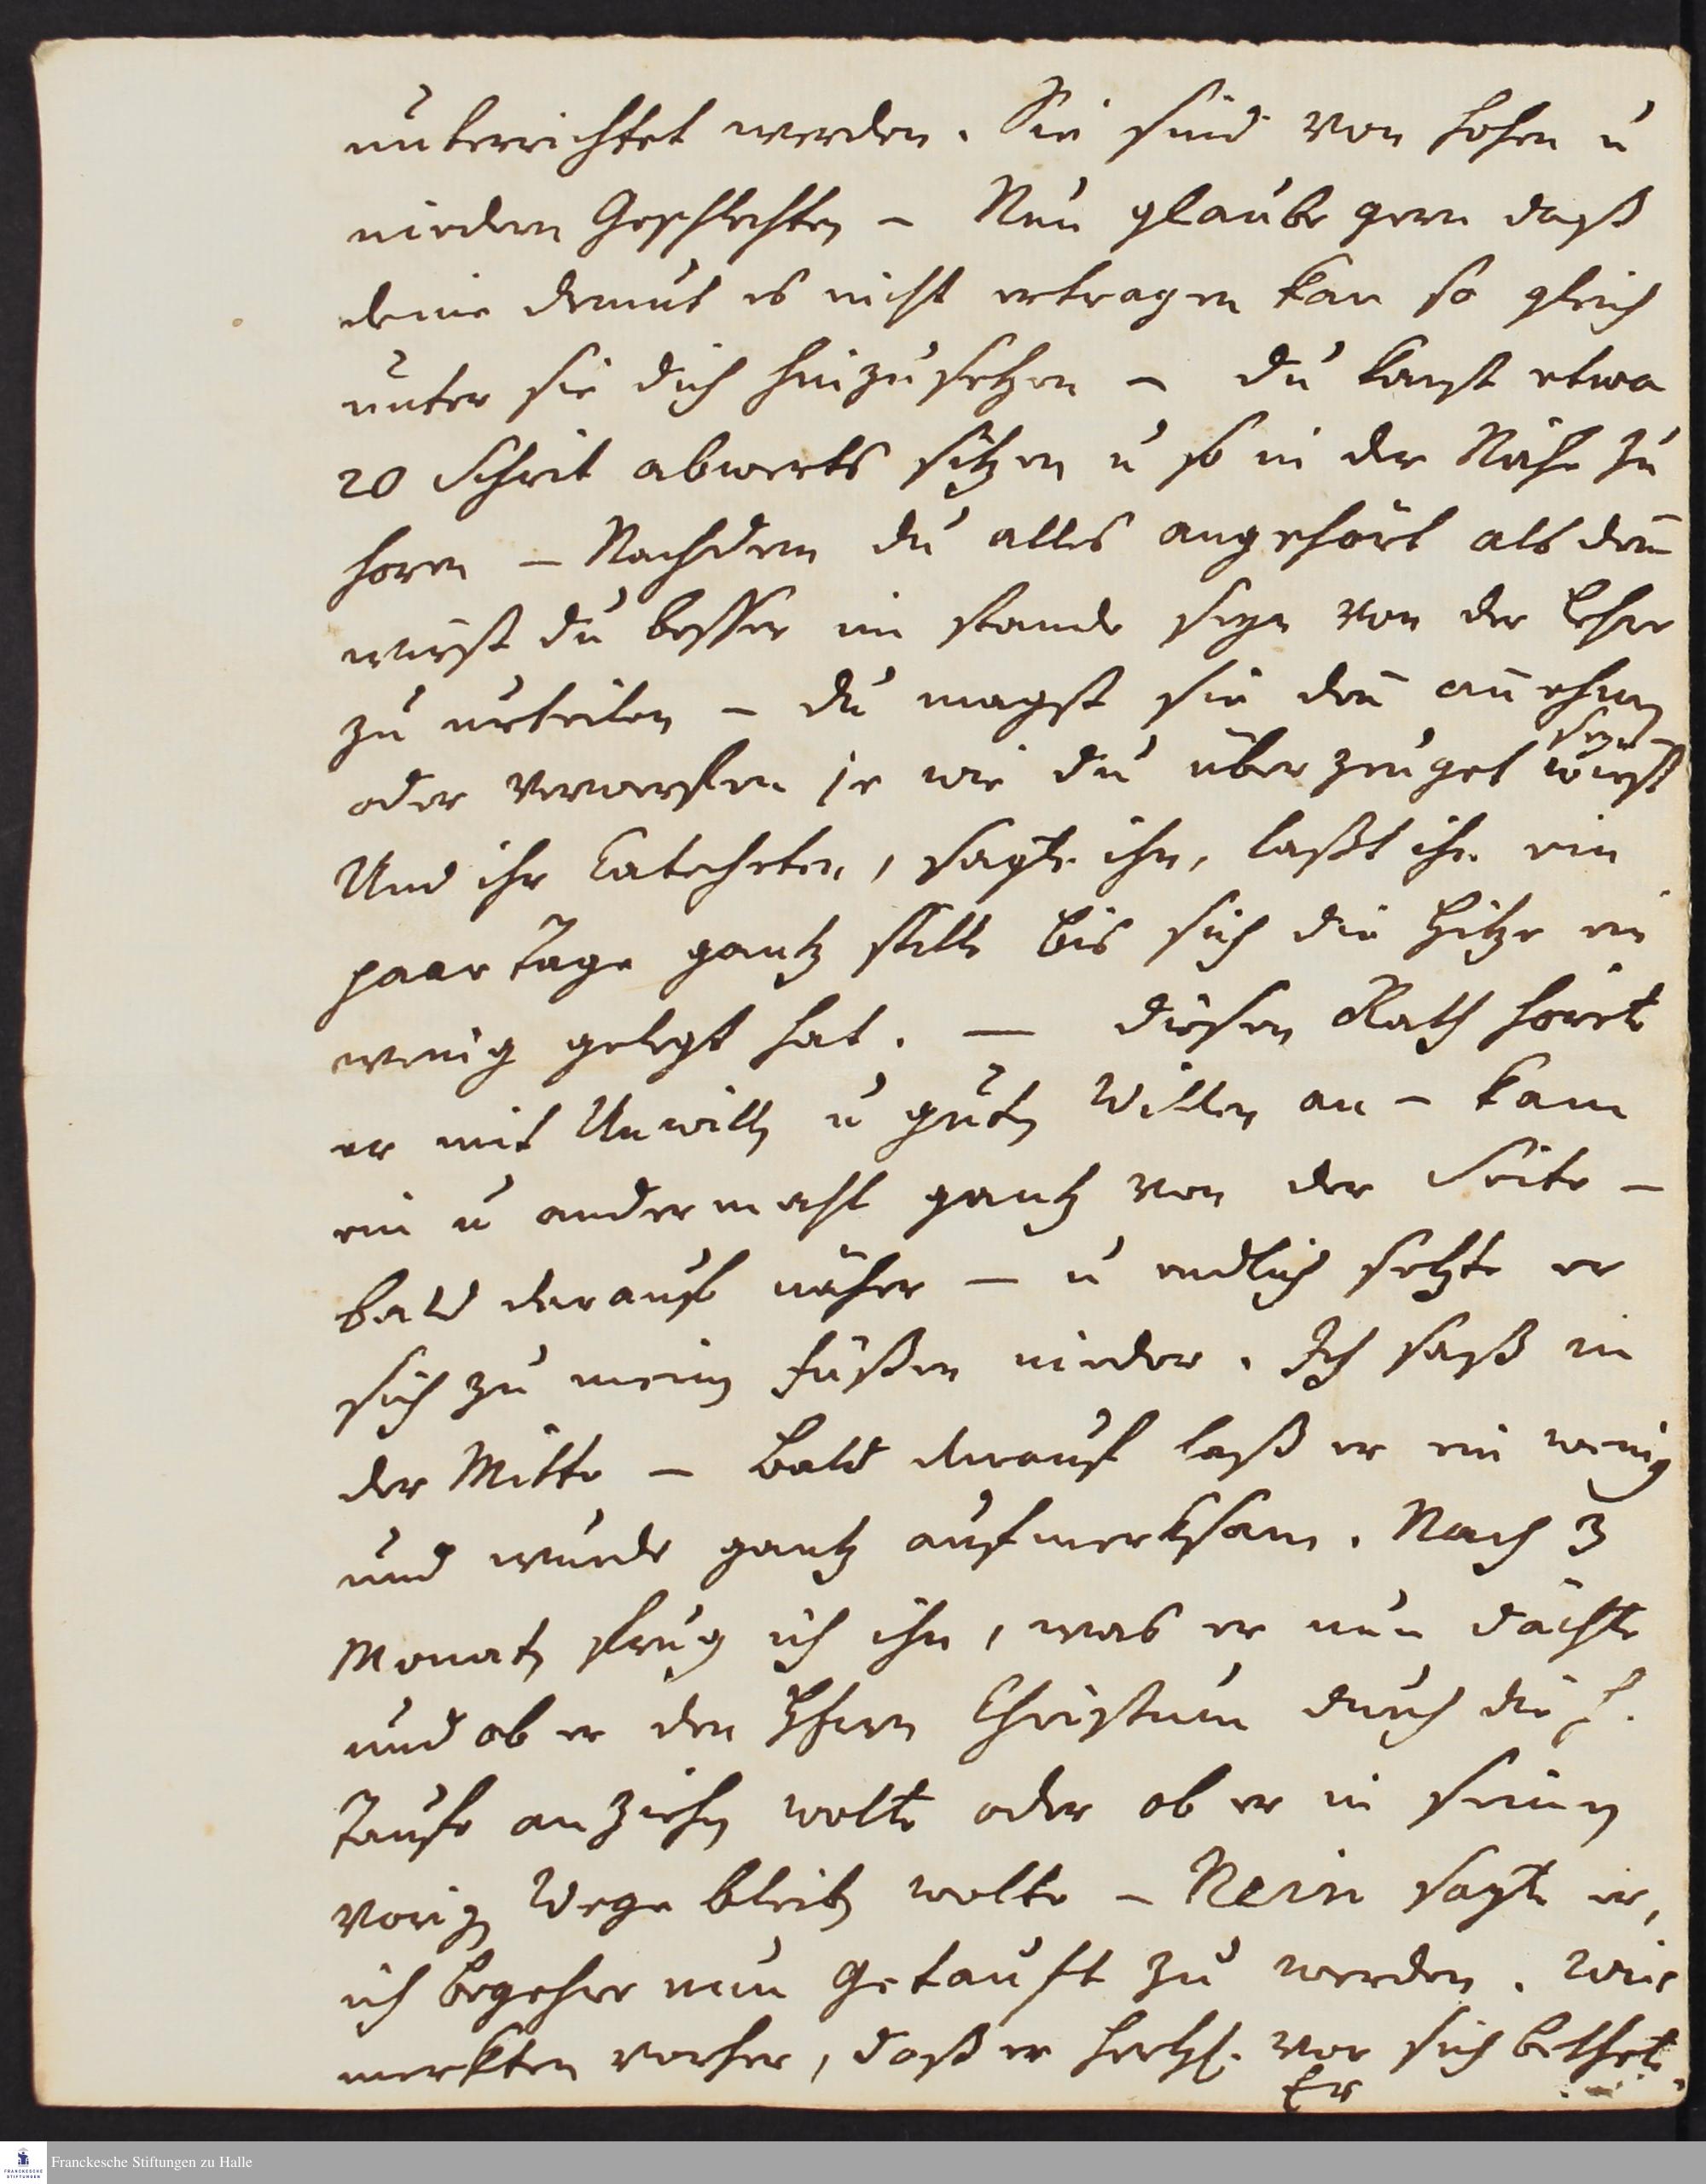 unterrichtet werden. Sie sind von hohen u
niedern Geschlechten – Nun glaube gern daß
deine demut es nicht ertragen kan so gleich
unter sie dich hinzusetzen – du kanst etwa
20 Schrit abwerts sitzen u so in der Nähe zu
horen – Nachdem du alles angehört als den̄
wirst du besser im stande seyn von der Lehre
zu urteilen – du magst sie den̄ an̄ehmen
seyn
oder verwerfen je wie du überzeuget wirst
Und ihr Catecheten, sagte ihn, laßt ihn ein
paar Tage gantz stille bis sich die Hitze ein
wenig gelegt hat. — diesen Rath hörete
er mit Unwillen u guten Willen an – kam
ein u andermahl gantz von der Seite –
bald darauf näher – u endlich setzte er
sich zu meinen Füßen nieder. Ich saß in
der Mitte – Bald darauf laß er ein wenig
und wurde gantz aufmerksam. Nach 3
Monaten frug ich ihn, was er nun dächte
und ob er den Herrn Christum durch die h.
Taufe anziehen wolte oder ob er in seinen
vorigen Wege bleiben wolte – Nein sagte er,
ich begehre nun getauft zu werden. Wir
merkten vorher, daß er hertzl. vor sich bethete.
Er
Franckesche Stiftungen zu Halle